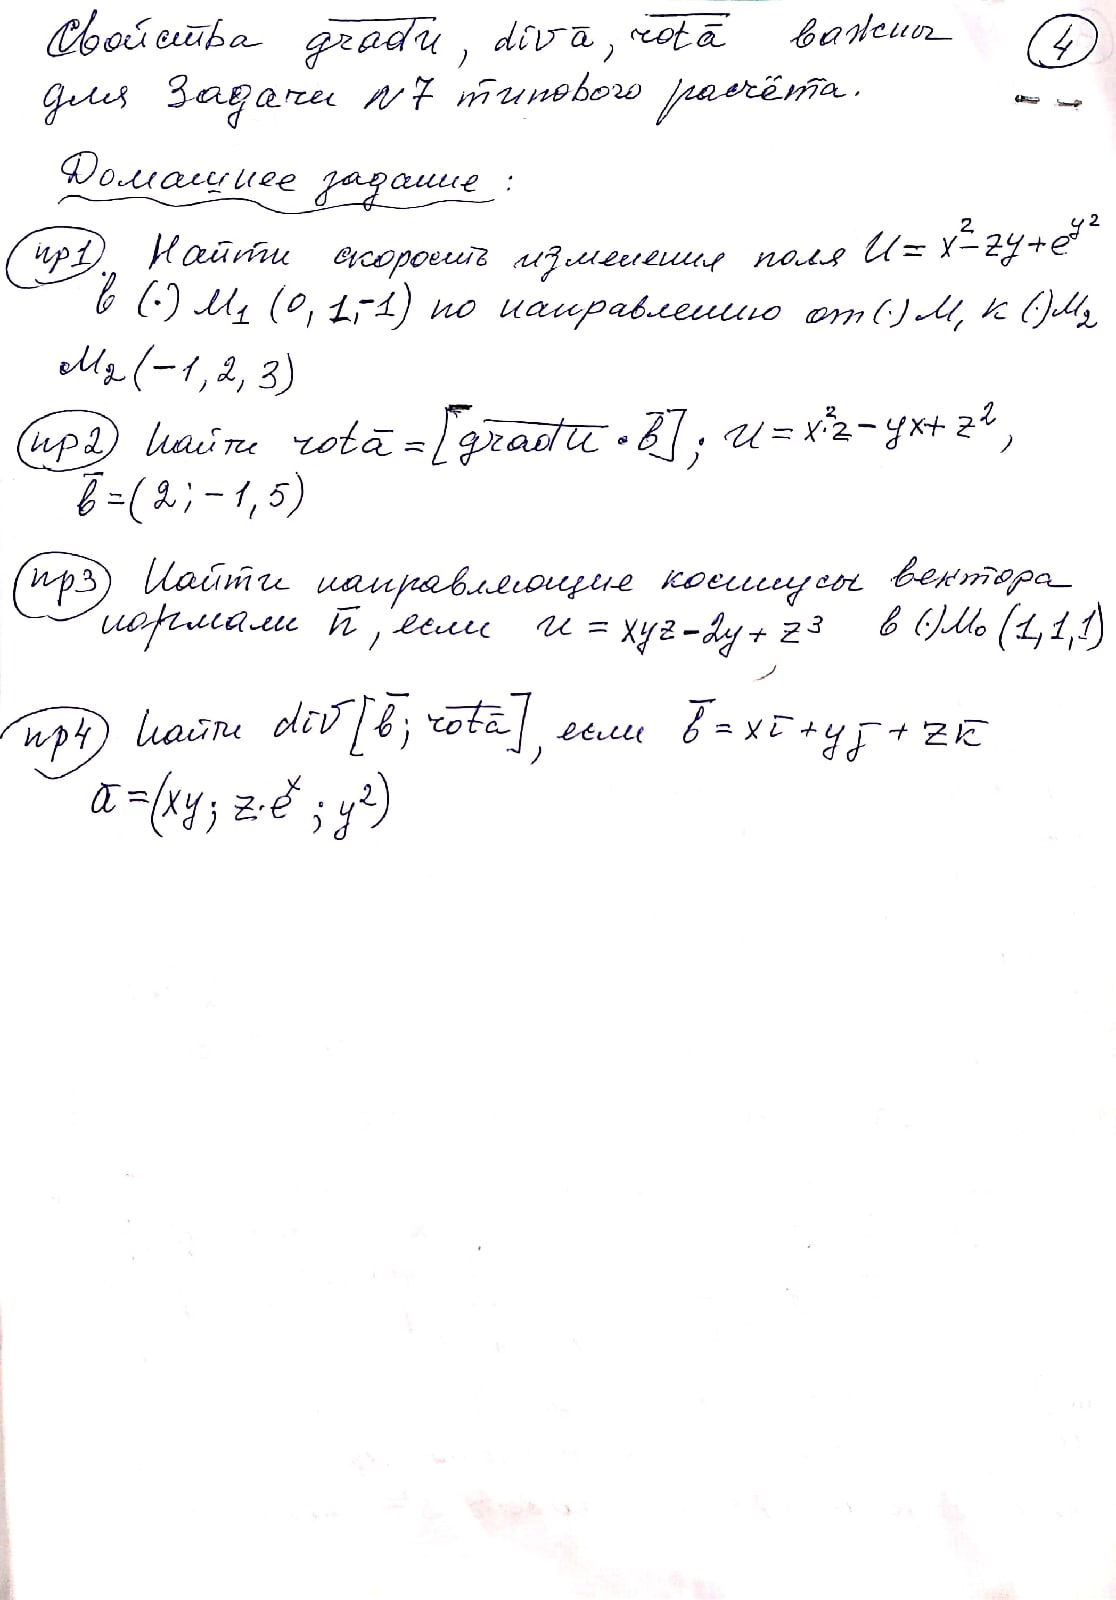 Свойства gradu, divā, rotā важны
④
для Задачи N7 типового расчёта.
Домашнее задание:
пр1. Найти скорость изменения поля U = x² - zy + e^{y²}
в (·) M₁ (0, 1, -1) по направлению от (·) M₁ к (·) M₂
M₂ (-1, 2, 3)
пр2 Найти rotā = [gradu · b̄]; u = x²·z - yx + z²,
b̄ = (2; -1, 5)
пр3 Найти направляющие косинусы вектора
нормали n̄, если u = xyz - 2y + z³ в (·) M₀ (1, 1, 1)
пр4 Найти div [b̄; rotā], если b̄ = xī + yj̄ + zk̄
ā = (xy; z·eˣ; y²)